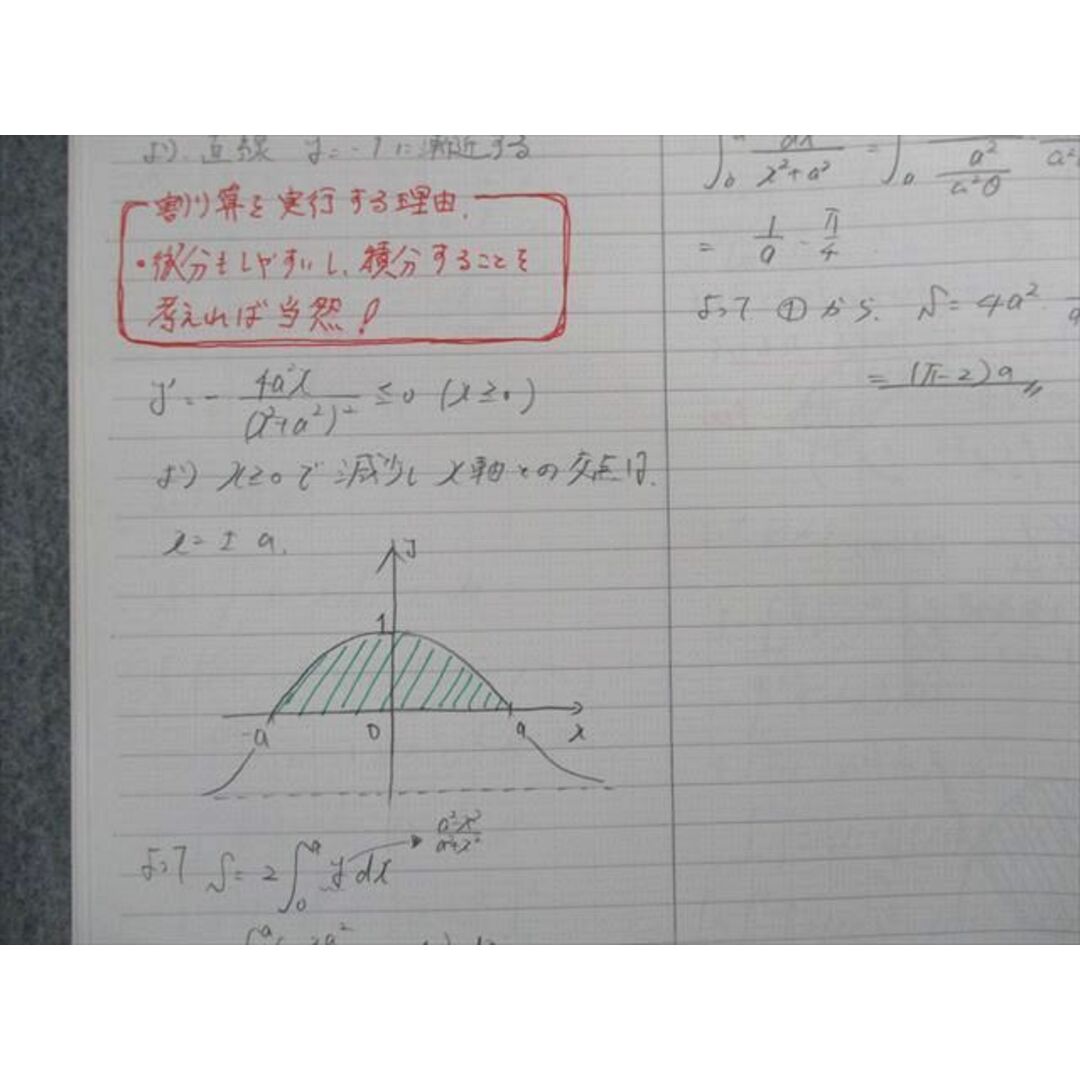 より、直線 y=-1に漸近する
割り算を実行する理由.
・微分もしやすいし、積分することを
考えれば当然!
y'=-4a²x/(x²+a²)² ≦0 (x≧0)
より x≧0で減少し x軸との交点は、
x=±a.
y
1
-a 0 a x
a²-x²/a²+x²
よって S=2∫₀ᵃ y dx
∫₀ᵃ dx/x²+a² = ∫₀ a²/a²θ
= 1/a・π/4
よって ①から. S=4a²・
=(π-2)a